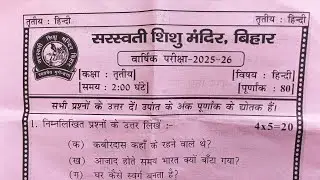 तृतीय : हिन्दी
तृतीय : हिन्दी
सरस्वती शिशु मंदिर, बिहार
वार्षिक परीक्षा-2025-26
कक्षा : तृतीय
विषय : हिन्दी
समय : 2:00 घंटे
पूर्णांक : 80
सभी प्रश्नों के उत्तर दें। उपांत के अंक पूर्णांक के द्योतक हैं।
1. निम्नलिखित प्रश्नों के उत्तर लिखें :-
4x5=20
(क) कबीरदास कहाँ के रहने वाले थे?
(ख) आजाद होते समय भारत क्यों बाँटा गया?
(ग) घर कैसे स्वर्ग बनता है?